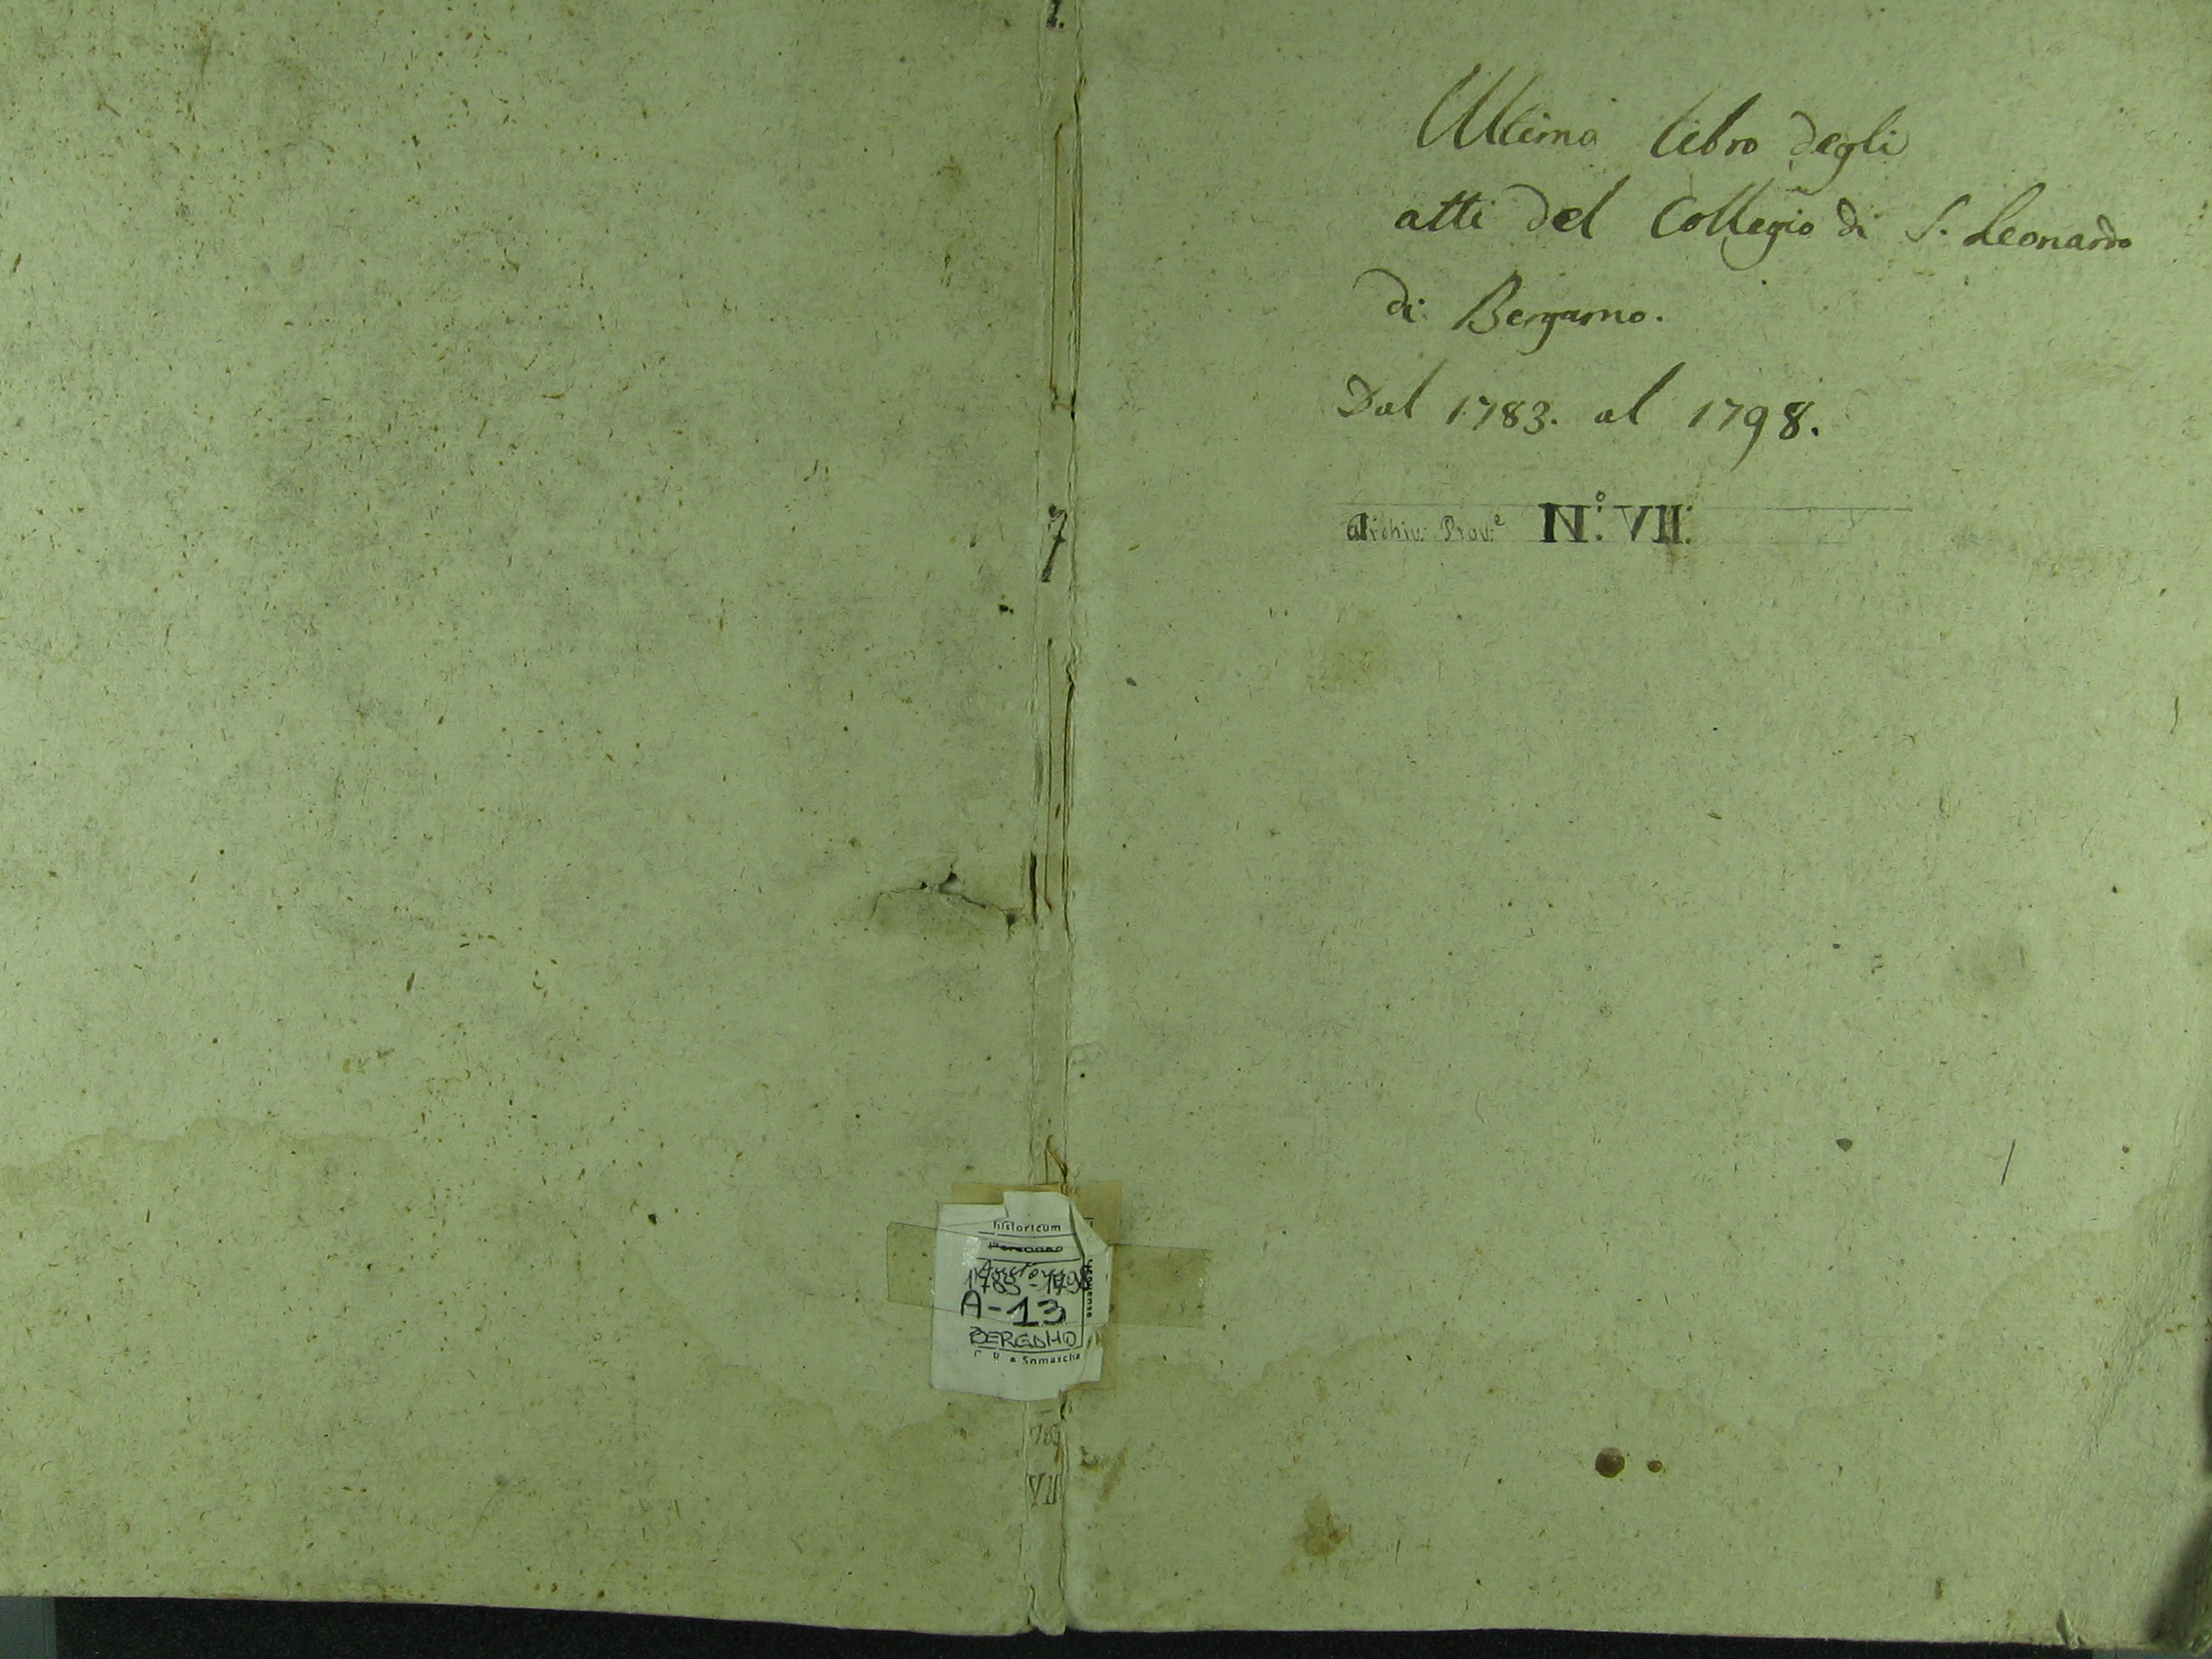 Ultimo libro degli
atti del Collegio di S. Leonardo
di Bergamo.
Dal 1783. al 1798.
Archiv: Prov:e N:o VII:
7
historicum
Personae
1783-1798
A-13
BERGAMO
Somascha
VII